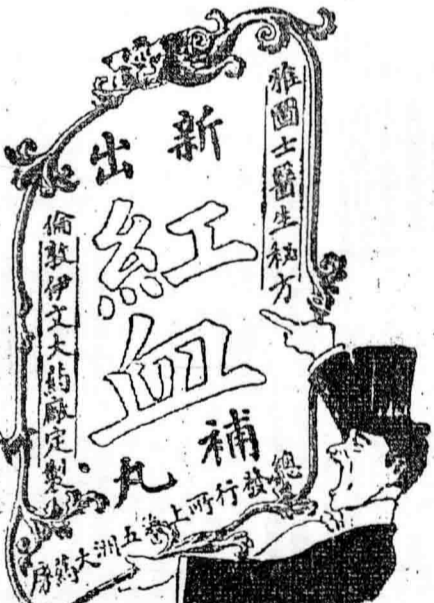 雅國士醫生秘方
新出
紅血
補丸
倫敦伊文大药厰定製
總發行所上海五洲大藥房